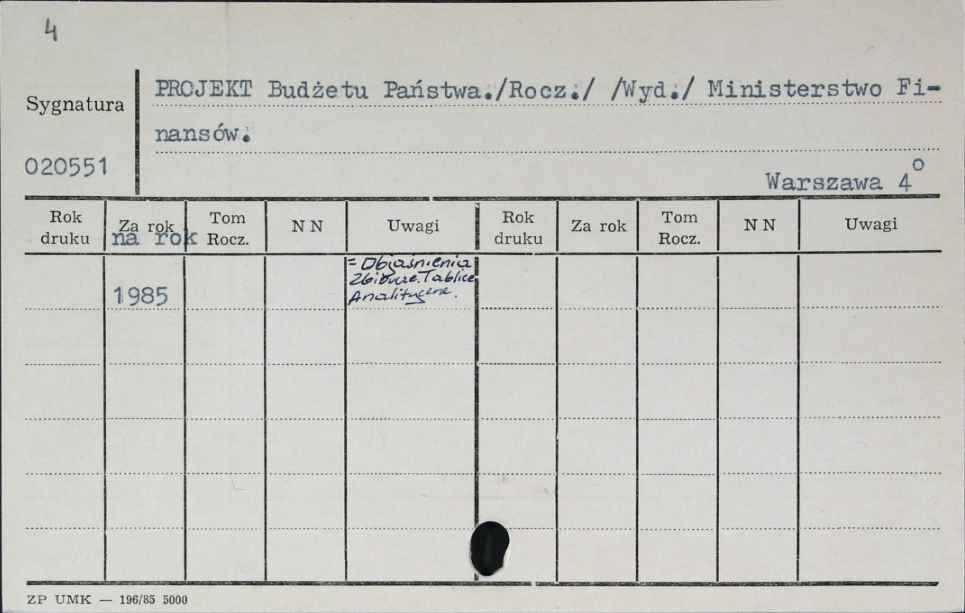 4
Sygnatura
PROJEKT Budżetu Państwa./Rocz./ /Wyd./ Ministerstwo Fi-
nansów.
020551
Warszawa 4°
Rok druku Za rok Tom Rocz. N N Uwagi Rok druku Za rok Tom Rocz. N N Uwagi
na rok
1985
= Objaśnienia
Zbiorcze. Tablice
Analityczne.
ZP UMK — 196/85 5000